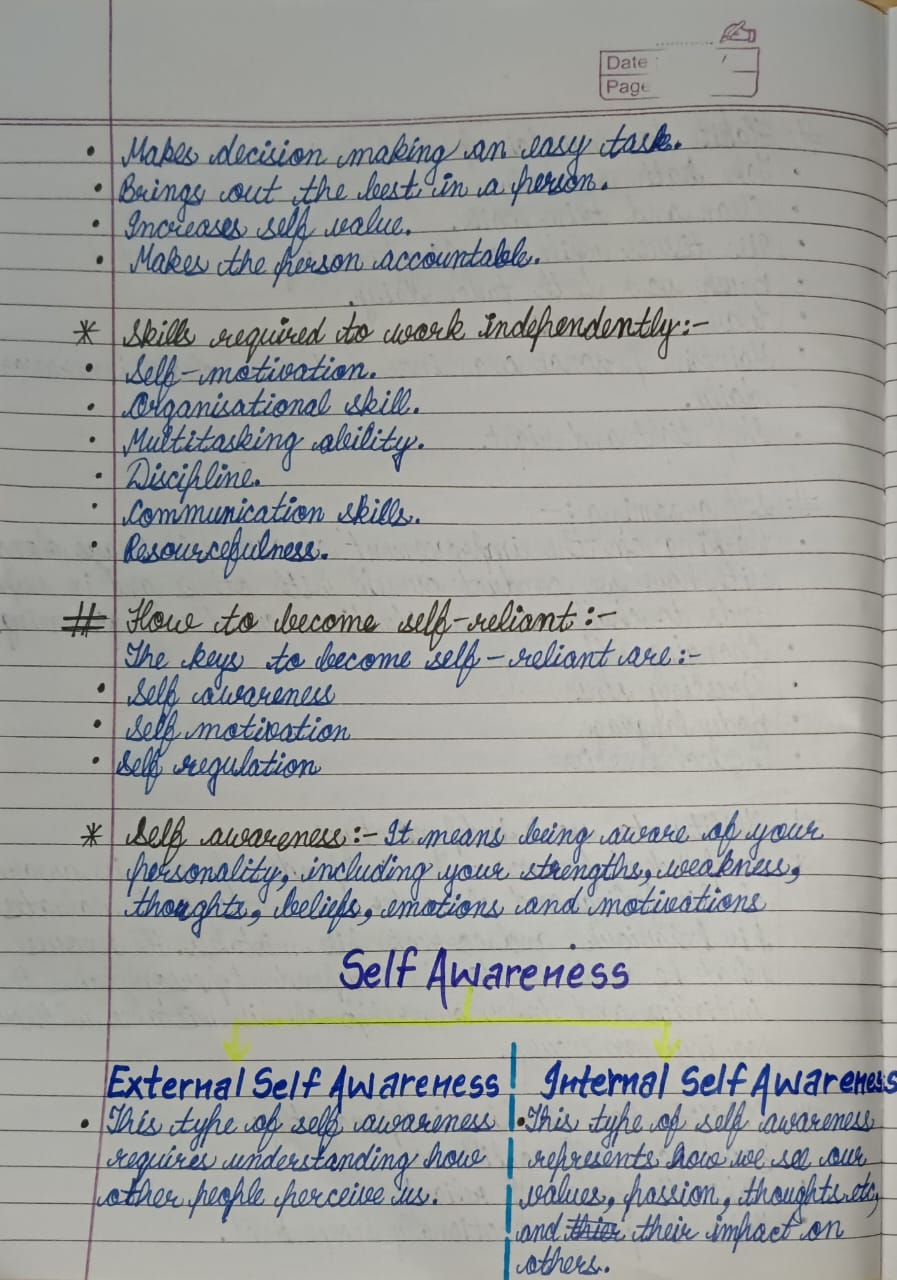 Date
Page
• Makes decision making an easy task.
• Brings out the best in a person.
• Increases self value.
• Makes the person accountable.
* Skills required to work independently:-
• Self-motivation.
• Organisational skill.
• Multitasking ability.
• Discipline.
• Communication skills.
• Resourcefulness.
# How to become self-reliant:-
The keys to become self-reliant are:-
• Self awareness
• Self motivation
• Self regulation
* Self awareness:- It means being aware of your
personality, including your strengths, weakness,
thoughts, beliefs, emotions and motivations
Self Awareness
External Self Awareness
• This type of self awareness
requires understanding how
other people perceive us.
Internal Self Awareness
• This type of self awareness
represents how we see our
values, passion, thoughts etc,
and their impact on
others.